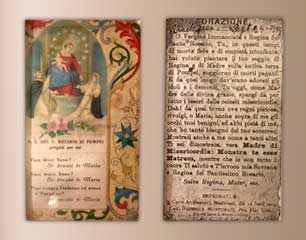 N. S. DEL S. ROSARIO DI POMPEI
pregate per noi
Vuoi viver bene?
Sii devoto di Maria
Vuoi morir bene?
Sii devoto di Maria
Sii devoto di Maria
ORAZIONE
O Vergine Immacolata e Regina del
Santo Rosario, Tu, in questi tempi
di morta fede e di empietà trionfante
hai voluto piantare il tuo seggio di
Regina e di Madre sulla antica terra
di Pompei, soggiorno di morti pagani.
E da quel luogo dov'erano adorati gli
idoli e i demonii, Tu oggi, come Madre
della divina grazia, spargi da per
tutto i tesori delle celesti misericordie.
Deh! da quel trono ove regni pietosa,
rivolgi, o Maria, anche sopra di me gli
occhi tuoi benigni, ed abbi pietà di me,
che ho tanto bisogno del tuo soccorso.
Mostrati anche a me come a tanti altri
Ti sei dimostrata, vera Madre di
Misericordia: Monstra te esse
Matrem, mentre che io con tutto il
cuore Ti saluto e T'invoco mia Sovrana
e Regina del Santissimo Rosario.
Salve Regina, Mater, ecc.